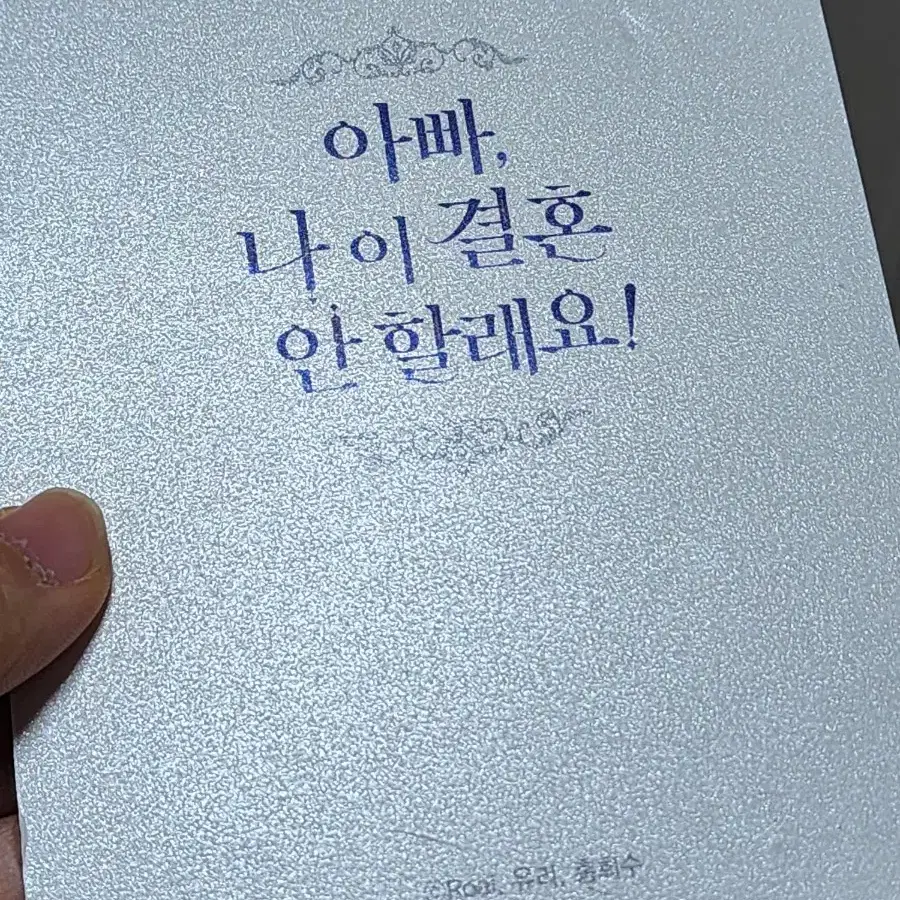 아빠,
나 이 결혼
안 할래요!
©Roal, 유리, 홍희수